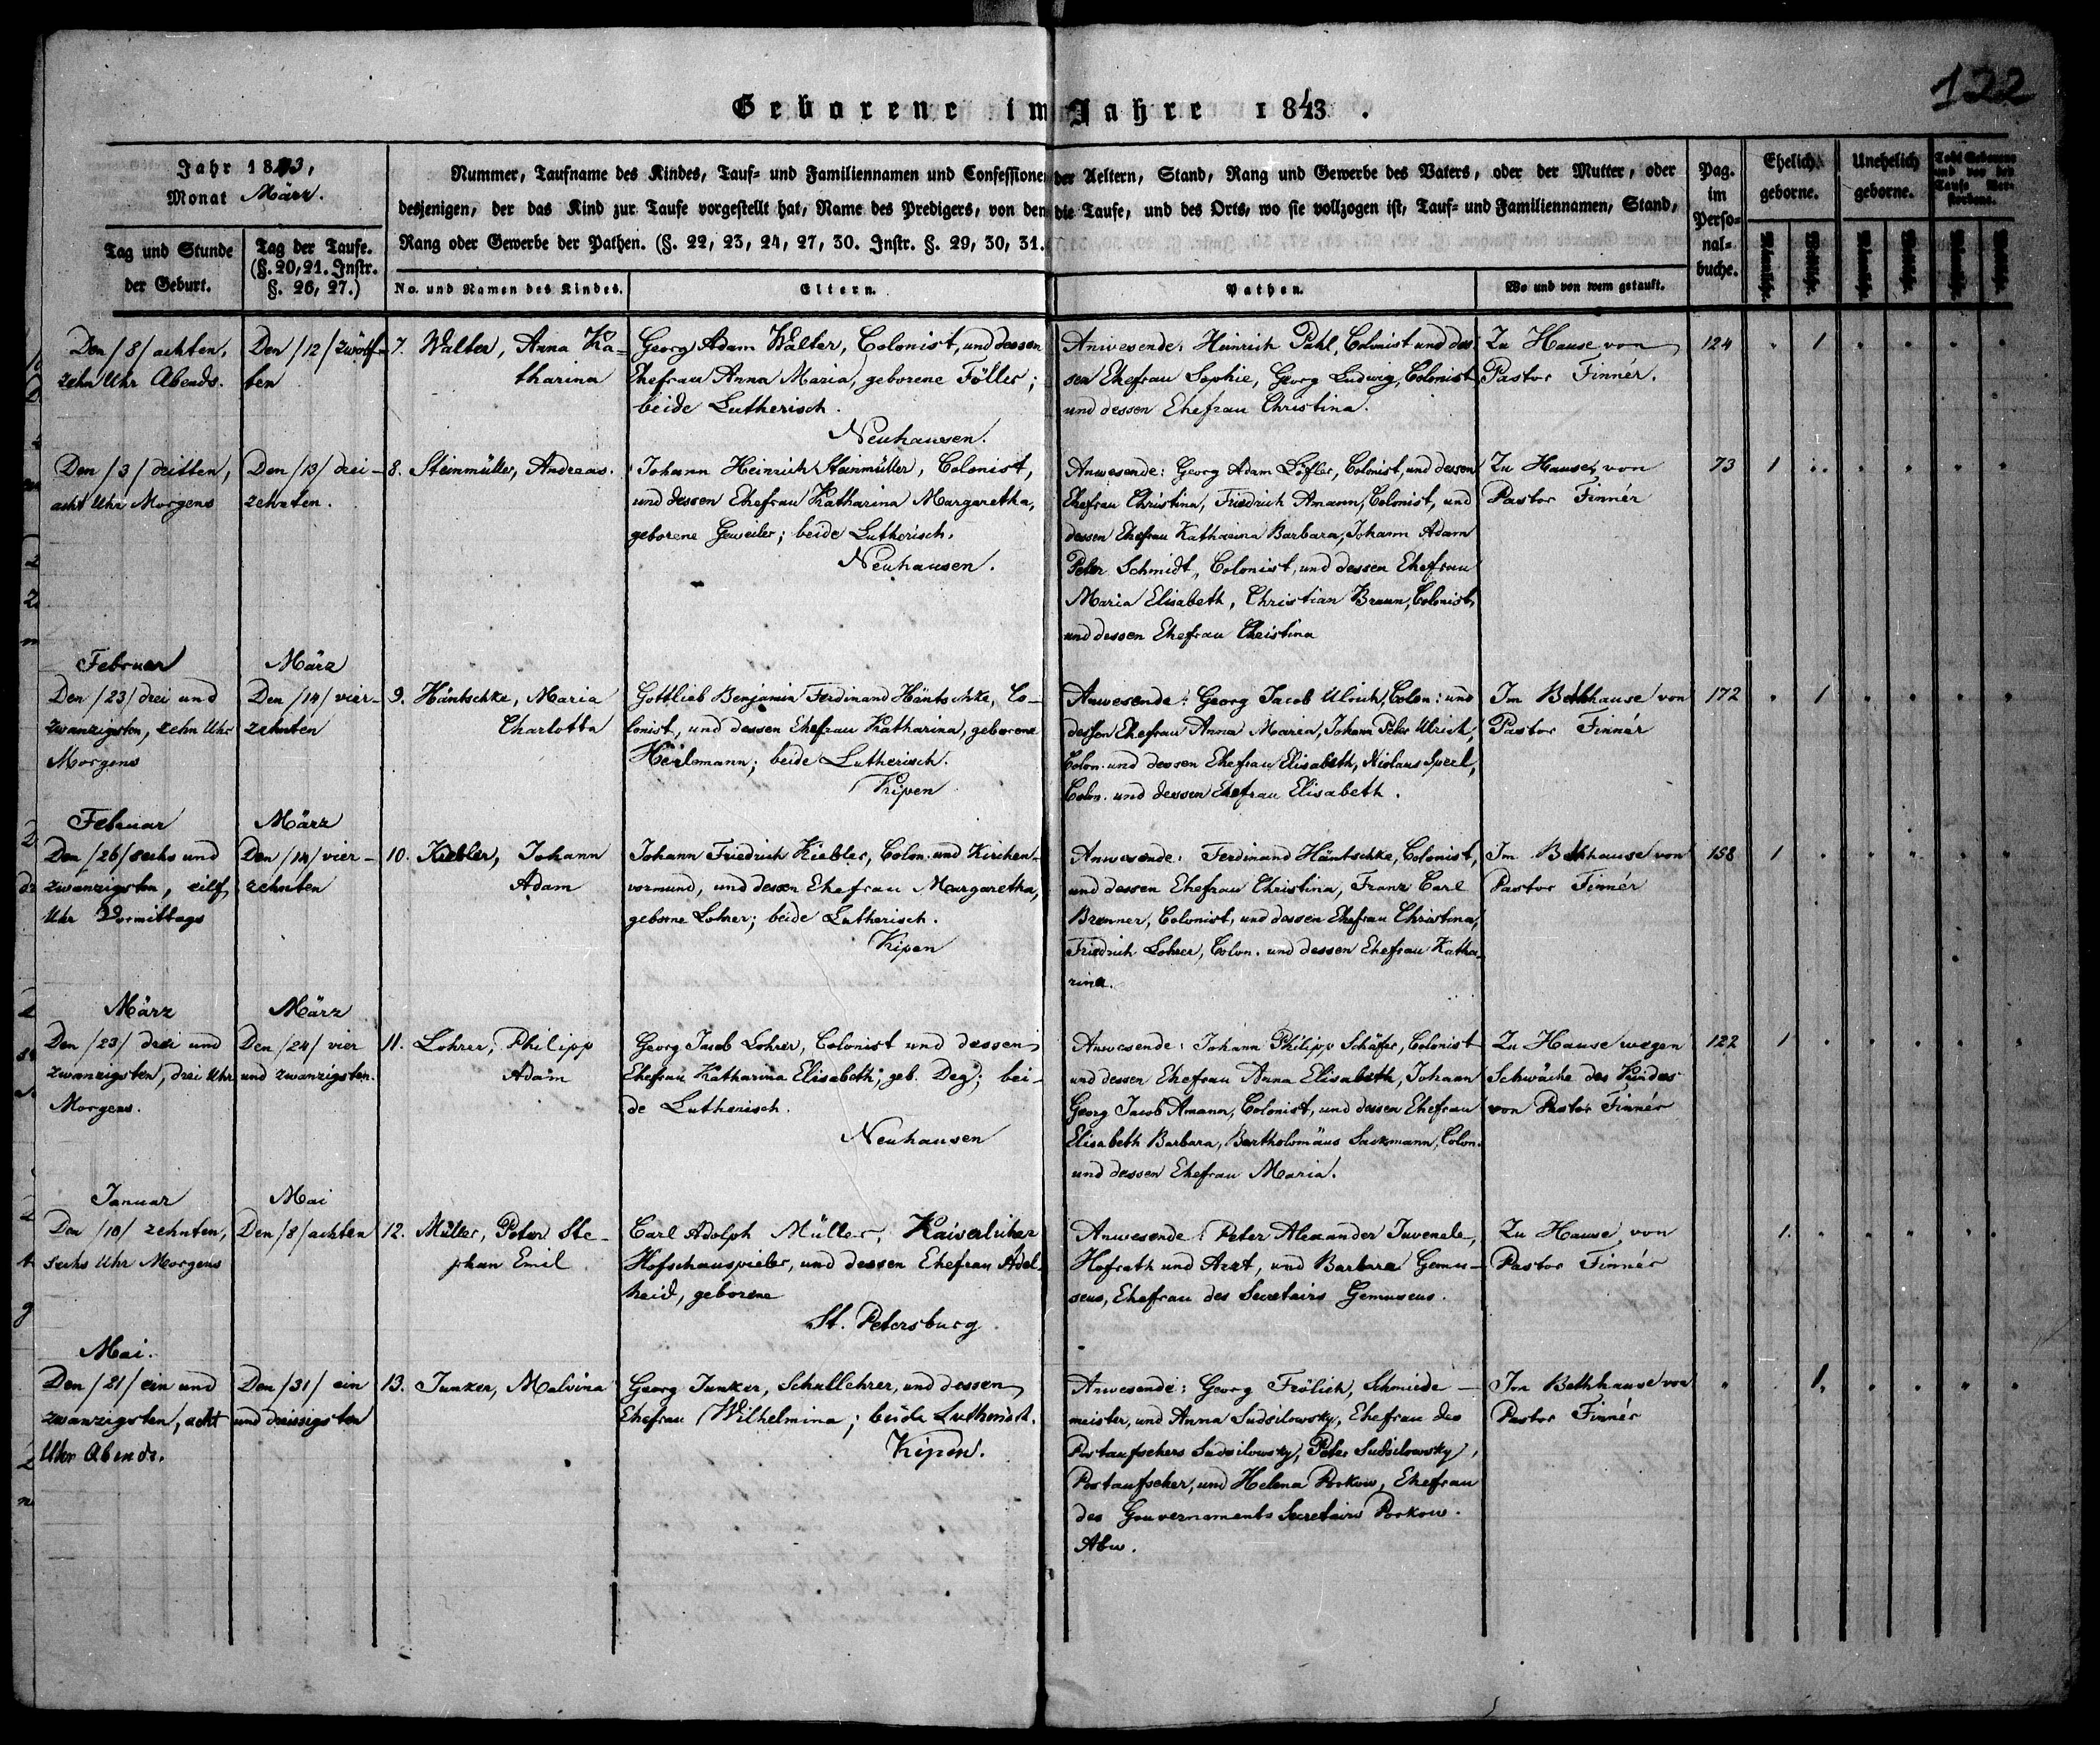 122
Geborene im Jahre 1843.
Jahr 1843,
Monat März.
Tag und Stunde
der Geburt.
Tag der Taufe.
(§. 20, 21. Instr.
§. 26, 27.)
Nummer, Taufname des Kindes, Tauf- und Familiennamen und Confessionen der Aeltern, Stand, Rang und Gewerbe des Vaters, oder der Mutter, oder
desjenigen, der das Kind zur Taufe vorgestellt hat, Name des Predigers, von dem die Taufe, und des Orts, wo sie vollzogen ist, Tauf- und Familiennamen, Stand,
Rang oder Gewerbe der Pathen. (§. 22, 23, 24, 27, 30. Instr. §. 29, 30, 31.
No. und Namen des Kindes.
Eltern.
Pathen.
Wo und von wem getauft.
Pag.
im
Perso-
nal-
buche.
Ehelich
geborne.
Unehelich
geborne.
Todt Geborene
und vor der
Taufe Ver-
storbene.
Männlich.
Weiblich.
Männlich.
Weiblich.
Männlich.
Weiblich.
Den /8/ achten,
zehn Uhr Abends.
Den /12/ zwölf-
ten
7. Walter, Anna Ka-
tharina
Georg Adam Walter, Colonist, und dessen
Ehefrau Anna Maria, geborene Föller;
beide Lutherisch.
Neuhausen.
Anwesende: Heinrich Pahl, Colonist und des-
sen Ehefrau Sophie, Georg Ludwig, Colonist
und dessen Ehefrau Christina.
Zu Hause von
Pastor Finnér.
124
1
Den /3/ dritten,
acht Uhr Morgens
Den /13/ drei-
zehnten.
8. Steinmüller, Andreas.
Johann Heinrich Steinmüller, Colonist,
und dessen Ehefrau Katharina Margaretha,
geborene Geweiler; beide Lutherisch.
Neuhausen.
Anwesende: Georg Adam Löfler, Colonist, und dessen
Ehefrau Christina, Friedrich Amann, Colonist, und
dessen Ehefrau Katharina Barbara, Johann Adam
Peter Schmidt, Colonist, und dessen Ehefrau
Maria Elisabeth, Christian Braun, Colonist,
und dessen Ehefrau Christina
Zu Hause, von
Pastor Finnér
73
1
Februar
Den /23/ drei und
zwanzigsten, zehn Uhr
Morgens
März
Den /14/ vier-
zehnten
9. Häntschke, Maria
Charlotta
Gottlieb Benjamin Ferdinand Häntschke, Co-
lonist, und dessen Ehefrau Katharina, geborene
beide Lutherisch.
Kipen
Anwesende: Georg Jacob Ulrich, Colon: und
dessen Ehefrau Anna Maria, Johann Peter Ulrich,
Colon. und dessen Ehefrau Elisabeth, Niolaus Sperl,
Colon. und dessen Ehefrau Elisabeth.
Im Bethhause von
Pastor Finnér
172
1
Februar
Den /26/ sechs und
zwanzigsten, eilf
Uhr Vormittags
März
Den /14/ vier-
zehnten
10. Kiebler, Johann
Adam
Johann Friedrich Kiebler, Colon. und Kirchen-
vormund, und dessen Ehefrau Margaretha,
geborne Lohrer; beide Lutherisch.
Kipen
Anwesende: Ferdinand Häntschke, Colonist,
und dessen Ehefrau Christina, Franz Carl
Brenner, Colonist, und dessen Ehefrau Christina,
Friedrich Lohrer, Colon. und dessen Ehefrau Katha-
rina.
Im Bethhause von
Pastor Finnér
158
1
März
Den /23/ drei und
zwanzigsten, drei Uhr
Morgens.
März
Den /24/ vier
und zwanzigsten.
11. Lohrer, Philipp
Adam
Georg Jacob Lohrer, Colonist und dessen
Ehefrau Katharina Elisabeth, geb. Deg; bei-
de Lutherisch.
Neuhausen
Anwesende: Johann Philipp Schäfer, Colonist
und dessen Ehefrau Anna Elisabeth, Johann
Georg Jacob Amann, Colonist, und dessen Ehefrau
Elisabeth Barbara, Bartholomäus Sackmann, Colon.
und dessen Ehefrau Maria.
Zu Hause wegen
Schwäche des Kindes
von Pastor Finnér
122
1
Januar
Den /10/ zehnten,
sechs Uhr Morgens
Mai
Den /8/ achten
12. Müller, Peter Ste-
phan Emil
Carl Adolph Müller, Kaiserlicher
Hofschauspieler, und dessen Ehefrau Adel-
heid, geborene
St. Petersburg
Anwesende: Peter Alexander Juvenale,
Hofrath und Arzt, und Barbara Gemu-
seus, Ehefrau des Secretairs Gemuseus.
Zu Hause, von
Pastor Finnér
1.
Mai.
Den /21/ ein und
zwanzigsten, acht
Uhr Abends.
Den /31/ ein
und dreissigsten
13. Junker, Malvina
Georg Junker, Schullehrer, und dessen
Ehefrau Wilhelmina; beide Lutherisch.
Kipen.
Anwesende: Georg Frölich, Schmiede-
meister, und Anna Sudsilowsky, Ehefrau des
Postaufsehers Sudsilowsky, Peter Sudsilowsky,
Postaufseher, und Helena Porkow, Ehefrau
des Gouvernements Secretairs Porkow.
Abw.
Im Bethhause von
Pastor Finnér
1.